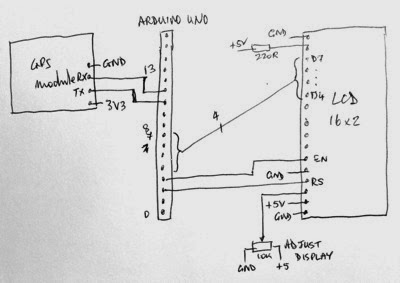 ARDUINO UNO
GPS
module
GND
Rx
Tx
3V3
13
8
7
0
4
GND
+5V
220R
D7
D4
LCD
16x2
EN
GND
RS
+5V
GND
10K
ADJUST
DISPLAY
GND
+5